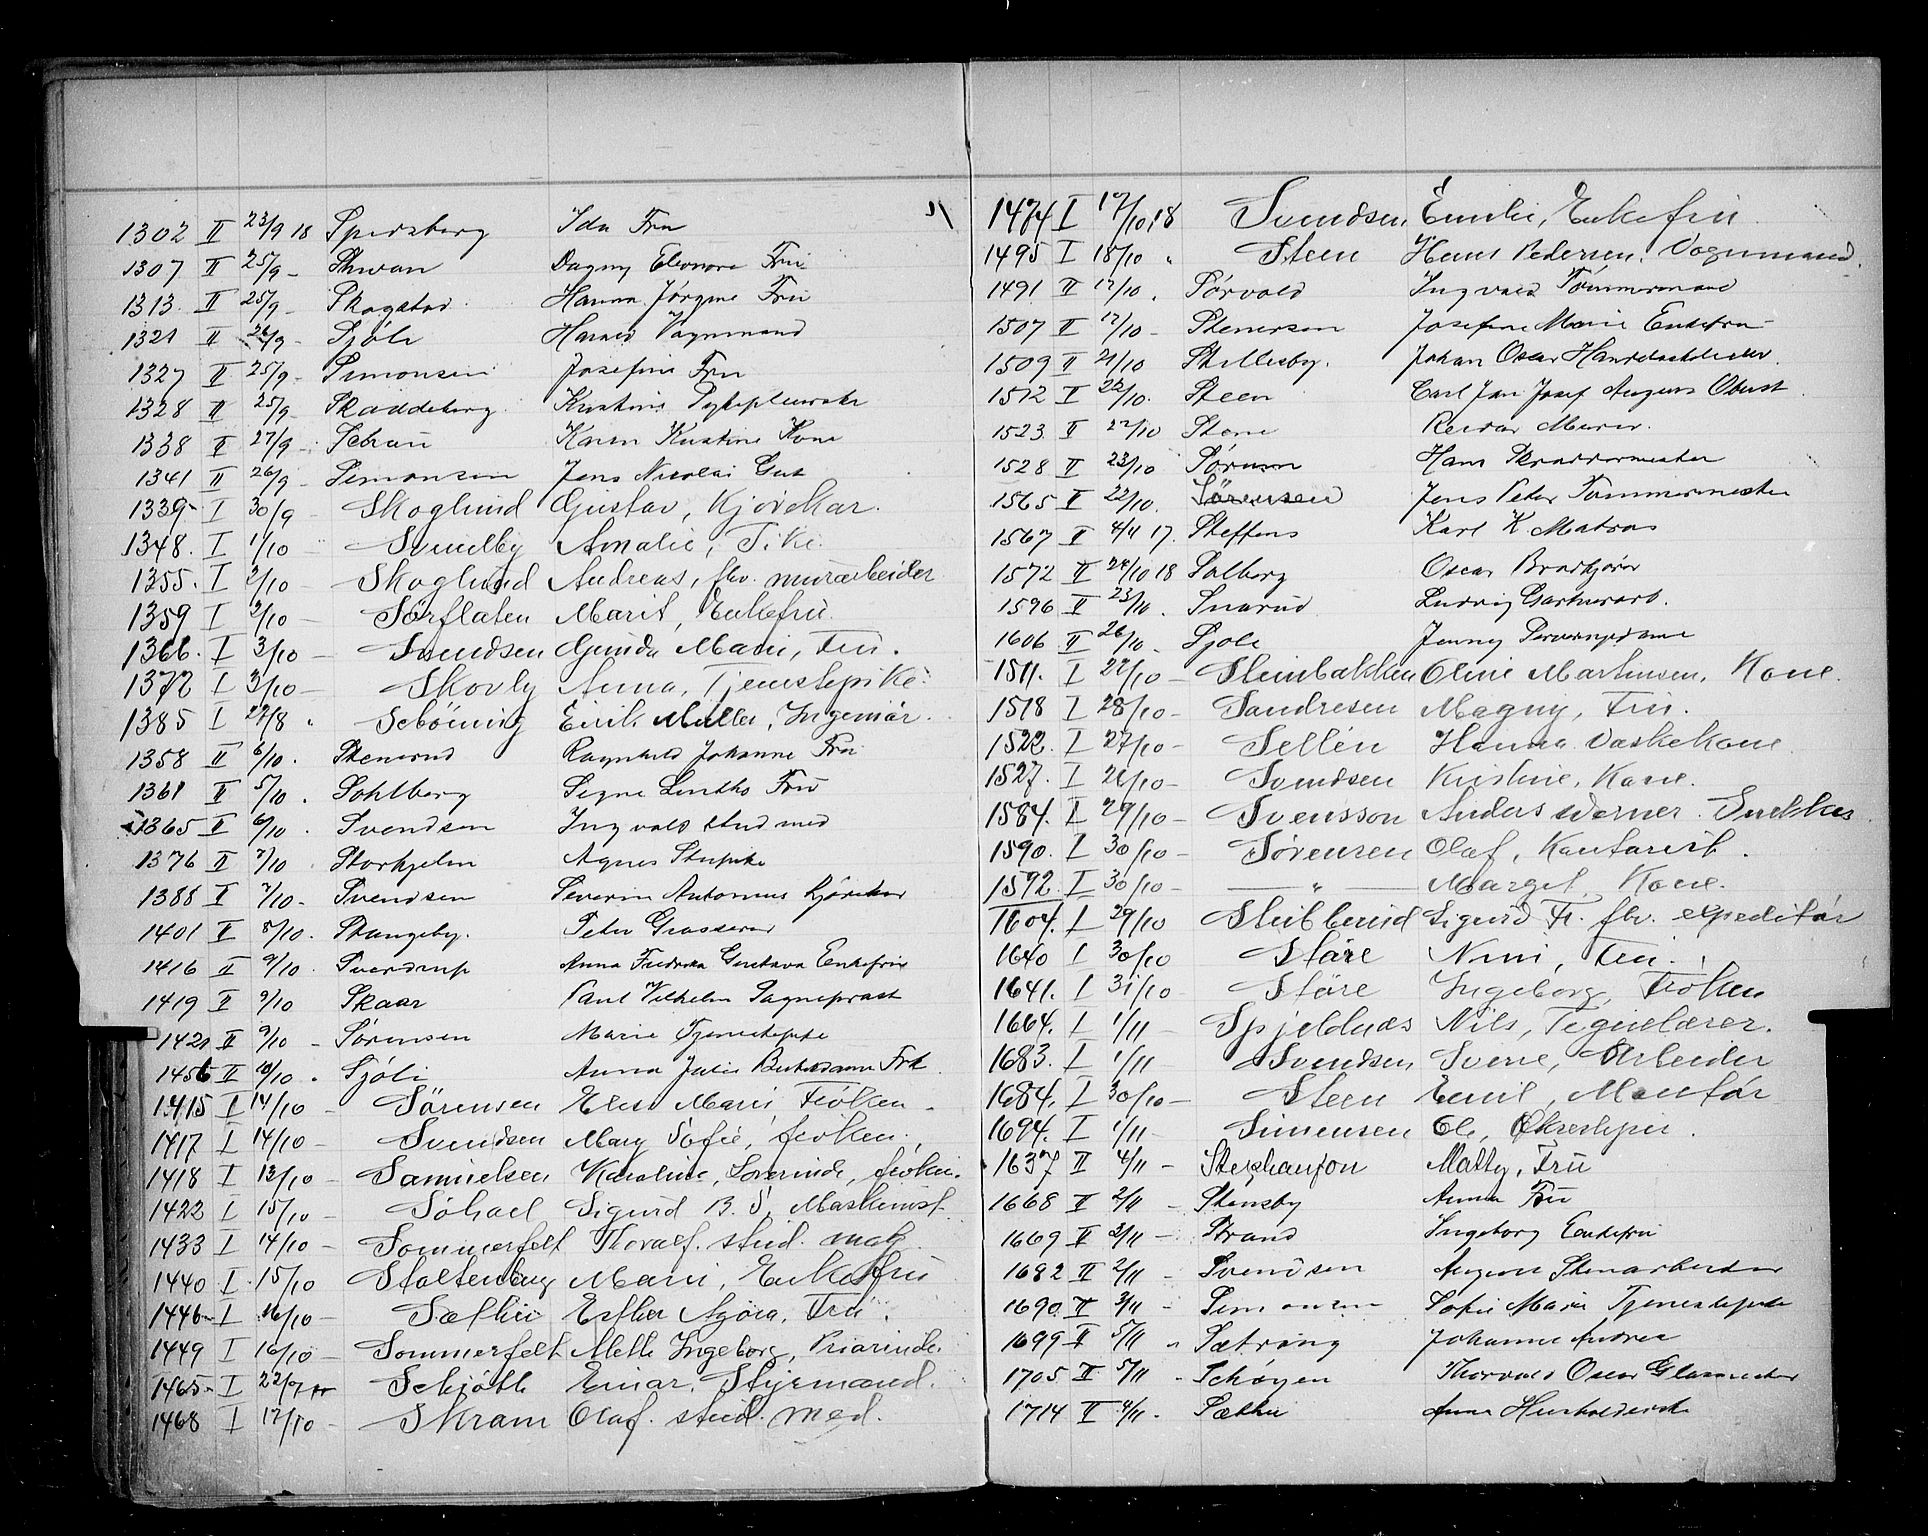 1302 II 23/9 18 Spersberg Ida Fru
1307 II 25/9 - Skwan Dagny Eleonora Fru
1313 II 25/9 - Skogstad Hanna Jörgine Fru
1321 II 24/9 - Sjöli Harald Vognmand
1327 II 25/9 - Simonsen Josefine Fru
1328 II 25/9 - Skaddeberg Kristine Sykepleierske
1338 II 27/9 - Schau Karen Kristine Kone
1341 II 26/9 - Simonsen Jens Nicolai Gut
1339 - I 30/9 - Skoglund Gustav, Kjörekar
1348. I 1/10 Sundby Amalie, Pike
1355. I 2/10 - Skoglund Andreas, fhv. murarbeider
1359 I 2/10 - Sørflaten Marit, Enkefru
1366. I 3/10 - Svendsen Gunda Marie, Fru.
1372 I 3/10 - Skovly Anna, Tjenestepike
1385 I 27/8 " Schöning Eirik Müller, Ingeniør.
1358 II 6/10 . Stenerud Ragnhild Johanne Fru
1361 II 5/10 . Sohlberg Signe Fru
1365 II 6/10 . Svendsen Ingvald stud med
1376 II 7/10 . Storhjelm Agnes
1388 I 7/10 - Svendsen Severin Antonius Kjørekar
1401 II 8/10 . Stangeby. Peter Grosserer
1416 II 9/10 . Sverdrup Anna Fredrikka Gustava Enkefru
1419 II 9/10 Skaar Paul Vilhelm Sogneprest
1421 II 9/10 - Sørensen Marie Tjenestepike
1456 II 10/10 . Sjöli Anna Julie Frk
1415 I 14/10 - Sørensen Elise Marie, Frøken.
1417 I 14/10 - Svendsen Mary Sofie, frøken.
1418 I 13/10 - Samuelsen Karoline, Severinde, frøken.
1422 I 15/10 - Söhoel Sigurd B. S. Maskinist
1433 I 14/10 - Sommerfelt Thoralf. stud. mag.
1440. I. 15/10 Stoltenberg Marie, Enkefru
1446 - I 16/10 - Sæther Esther Fru.
1449 I 16/10 - Sommerfelt Mette Ingeborg, Priorinde.
1465 - I 22/7 Schjøth Einar. Styrmand.
1468 I 17/10 Skram Olaf. stud. med.
1474 I 17/10 18 Svendsen Emilie, Enkefru
1495 I 18/10 " Steen Hans Pedersen. Vognmand.
1491 II 17/10 . Sörvald Ingvald Tömmermand
1507 II 17/10 - Stenersen Josefine Marie Enkefru
1509 II 21/10 Skillesby. Johan Oscar
1512 I 22/10. Steen Carl Jan Josef August Oberst.
1523 II 22/10 Stone Reidar Murer.
1528 II 23/10 Sörum Hans Skræddermester
1565 II 22/10. Sörensen Jens Peter Tömmermester
1567 II 4/11 17. Steffens Karl K. Matros
1572 II 24/10 18 Solberg Oscar Brødkjører
1596 II 23/10. Snarud Ludvig Gartnerarb.
1606 II 26/10 - Sjöli Jenny
1511. I 22/10 - Stenbakken Oline Martinsen, Kone.
1518 I 28/10 - Sandresen Magny, Fru.
1522. I 27/10 - Sellén Hanna Vaskekone
1527. I 26/10 - Svendsen Kristine, Kone.
1584. I 29/10 - Svensson Anders Werner. Snekker.
1590. I 30/10 - Sørensen Olaf, Kontorist.
1592. I 30/10 - — " — Margit, Kone.
1604. I 29/10 Stubberud Sigurd Fr. fhv. expeditør
1640 I 30/10 Støre Nini, Fru.
1641. I 31/10 - Støre Ingeborg, Frøken
1664. I 1/11 - Spjeldnæs Nils, Tegnelærer.
1683. I 1/11 Svendsen, Sverre, Arbeider
1684. I 30/10 - Steen Emil, Montør
1694. I 1/11 - Simensen Ole,
1637 II 4/11 - Stephanson Matty, Fru
1668 II 2/11 - Stensby Anna Fru
1669 II 2/11 - Strand Ingeborg Enkefru
1682 II 2/11 - Svendsen August Stenarbeider
1690 II 3/11 - Simonsen Sofie Marie Tjenestepike
1699 II 5/11 " Sætrang Johanne Andrea
1705 II 5/11 - Schøyen Thorvald Oscar Glasmester
1714 II 4/11 . Sæther Anna Husholderske